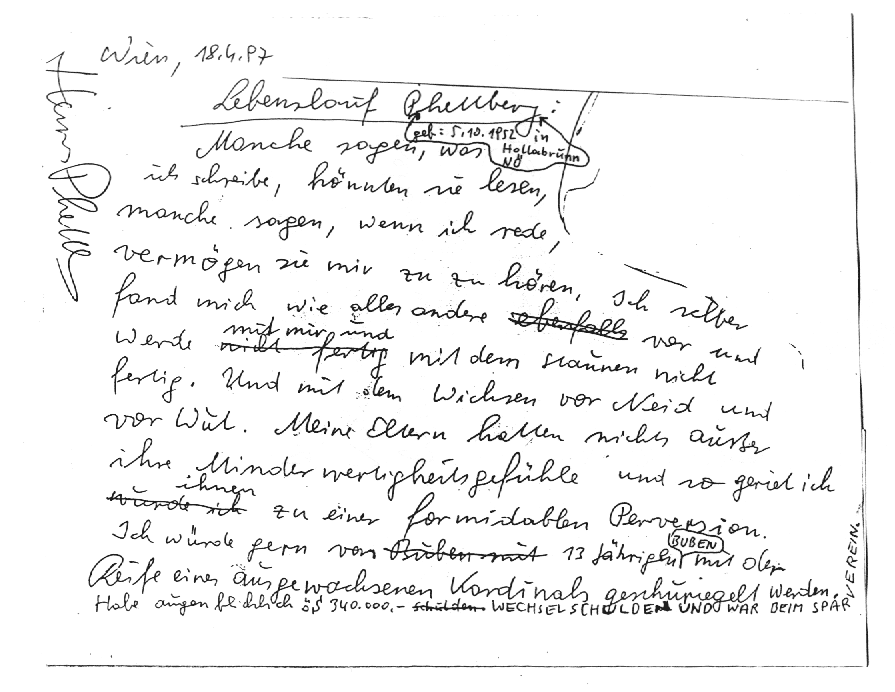 Wien, 18.4.97
Hermes Phettb
Lebenslauf Phettberg:
geb: 5.10.1952 in
Hollabrunn
NÖ
Manche sagen, was
ich schreibe, könnten sie lesen,
manche sagen, wenn ich rede,
vermögen sie mir zu zu hören. Ich selber
fand mich wie alles andere ebenfalls vor und
mit mir und
werde nicht fertig mit dem staunen nicht
fertig. Und mit dem Wichsen vor Neid und
vor Wut. Meine Eltern hatten nichts außer
ihre Minderwertigkeitsgefühle und so geriet ich
ihnen
wurde ich zu einer formidablen Perversion.
BUBEN
Ich würde gern von Buben mit 13 jährigen mit der
Reife eines ausgewachsenen Kardinals geschuriegelt werden.
Habe augenblicklich öS 340.000,- schulden WECHSELSCHULDEN UND WAR BEIM SPAR
VEREIN.